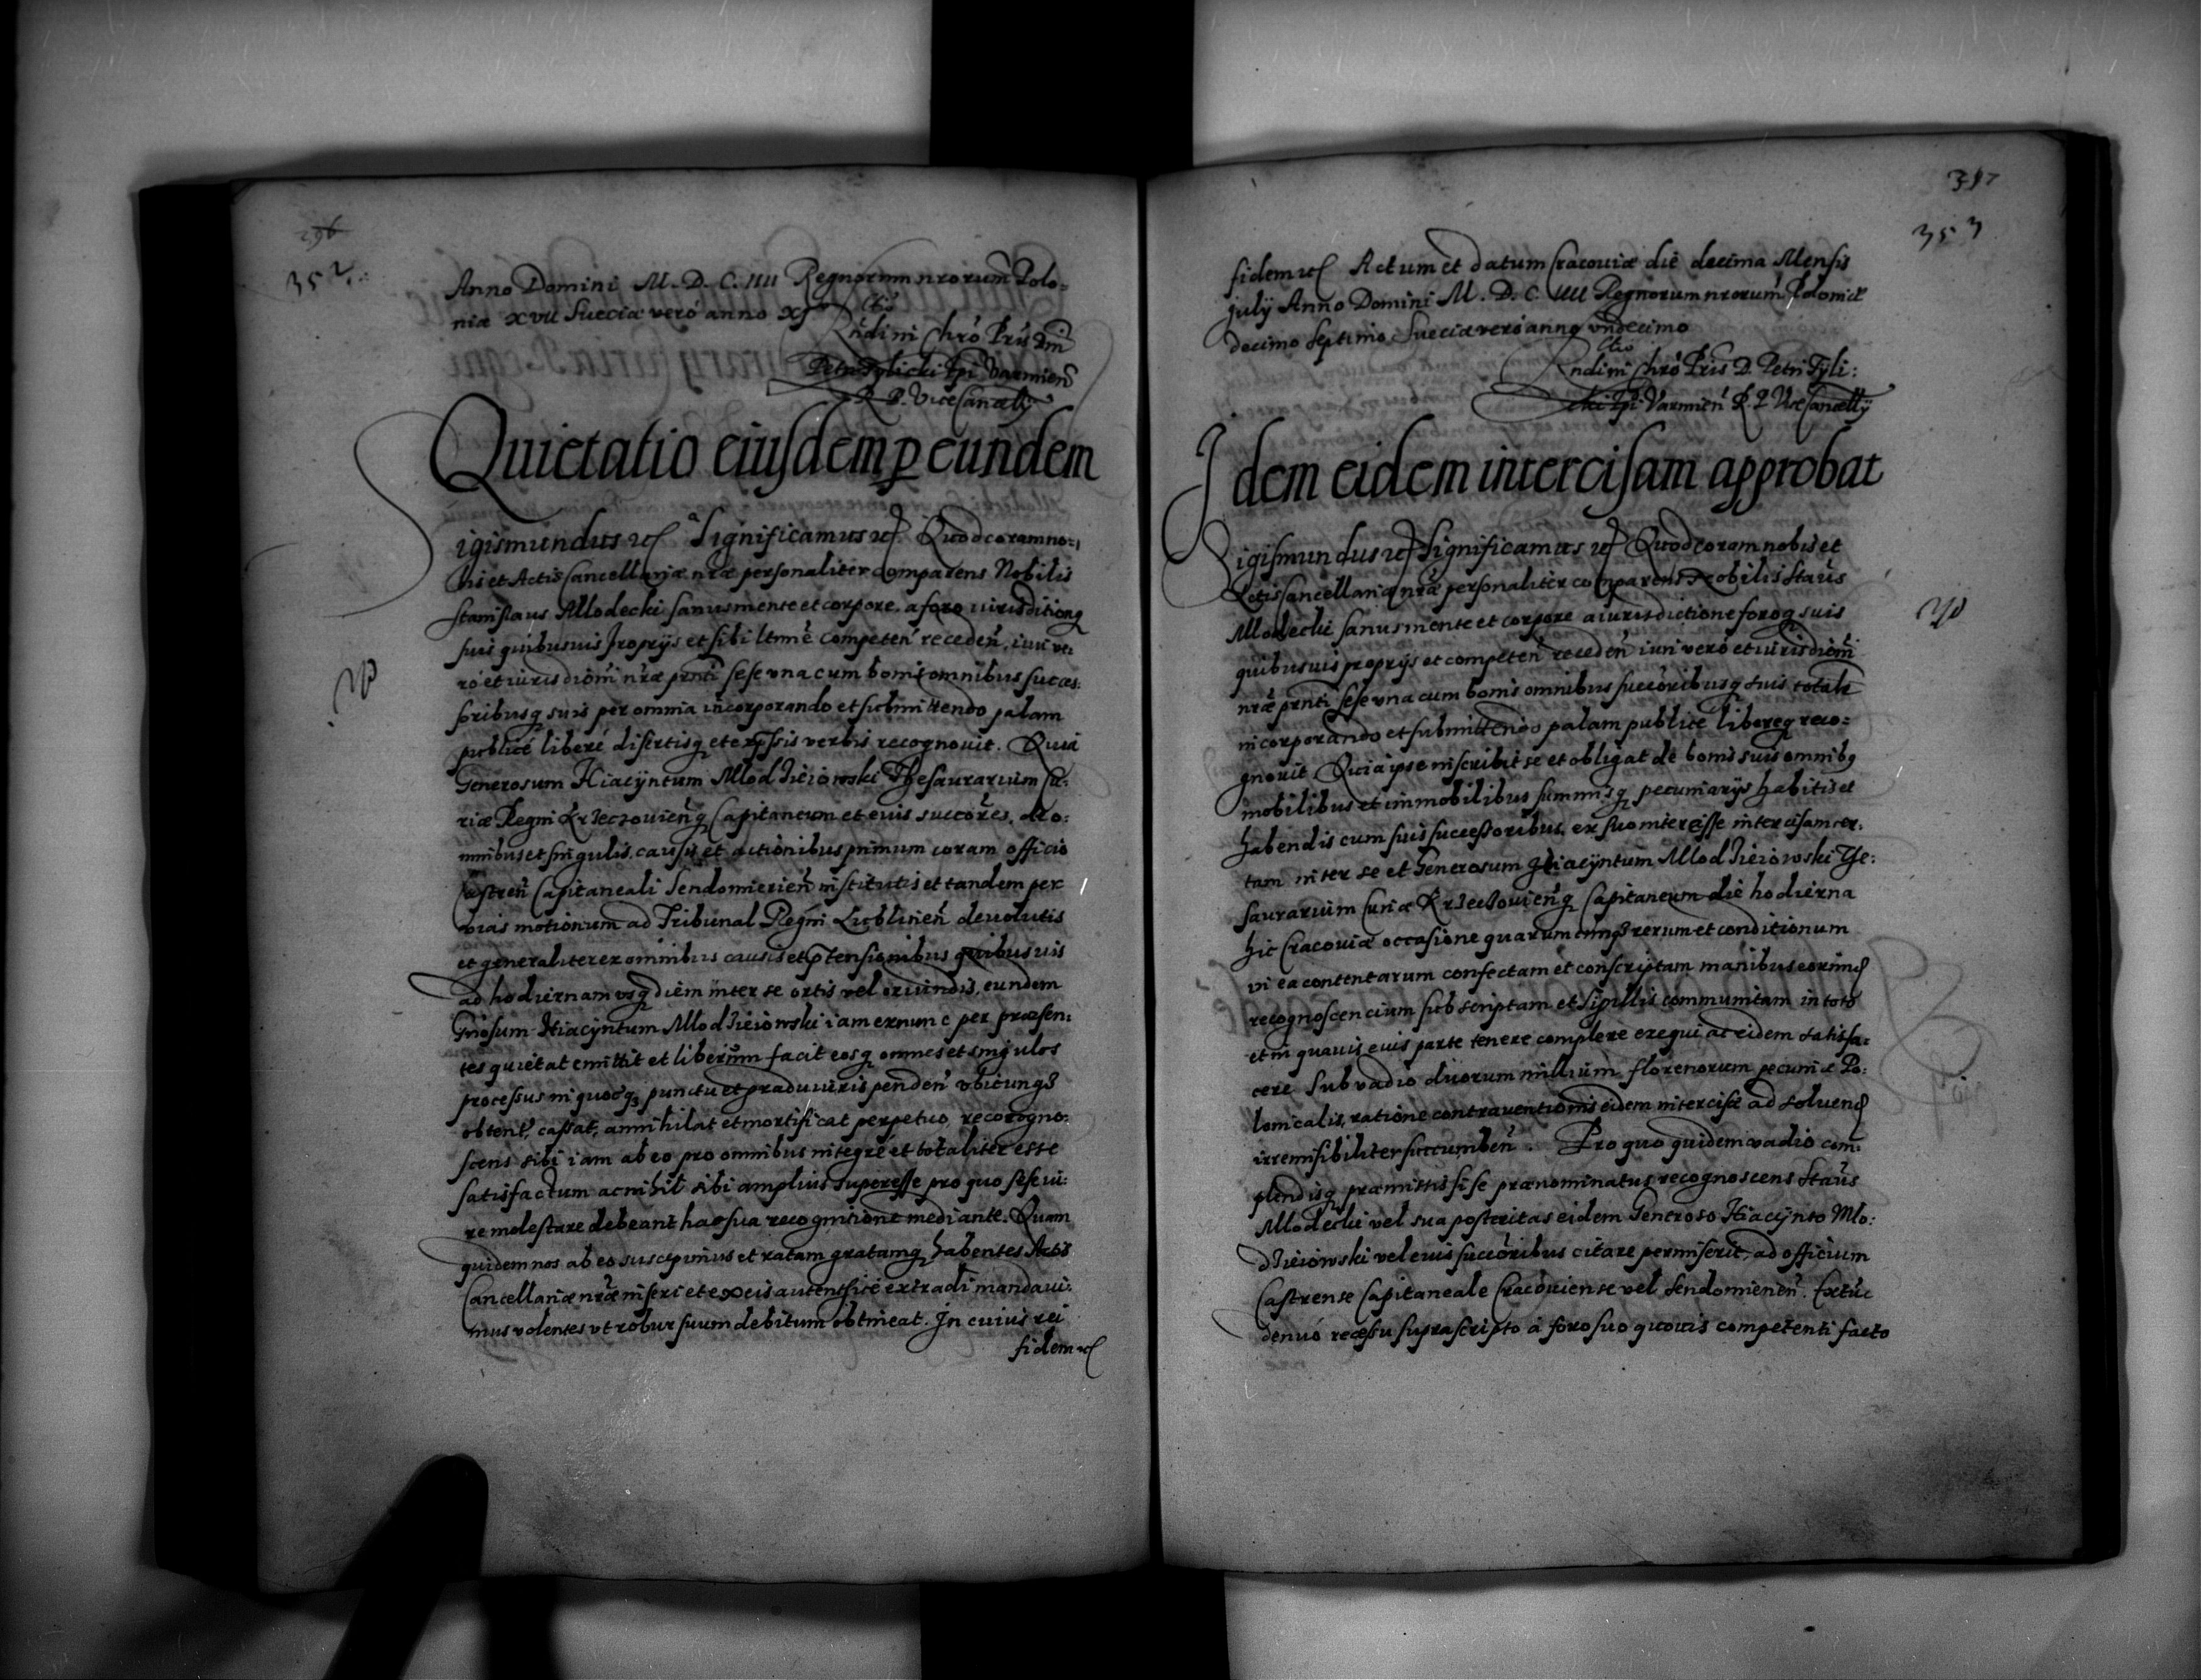 296
352
Anno Domini M. D. C. IIII Regnorum nrorum Polo=
niæ XVII Sueciæ veró anno XI
Rndi in Chró Pris Dni
Petri Tylicki Epi Varmien
R. P. ViceCancellÿ
Quietatio eiusdem p eundem
Sigismundus etc Significamus etc Quod coram no=
bis et Actis Cancellariæ nræ personaliter comparens Nobilis
Stanislaus Mlodecki sanus mente et corpore a foro iurisditioneq
suis quibusuis proprijs et sibi ltime competen receden, iuri ve:
ro et iurisdioni nræ prnti sese vna cum bonis omnibus succes:
soribusq suis per omnia incorporando et submittendo palam
publicé liberé disertisq et expssis verbis recognouit. Quia
Generosum Hiacÿntum Mlodzieiowski Thesaurarium Cu:
riæ Regni Krzeczouienq Capitaneum et eius succores, de o:
mnibus et singulis causis et actionibus primum coram officio
Castren Capitaneali Sendomirien institutis et tandem per
vias motionum ad Tribunal Regni Lublinen deuolutis
et generaliter ex omnibus causis et ptensionibus quibusuis
ad hodiernam vsq diem inter se ortis vel oriundis, eundem
Gnosum Hiacÿntum Mlodzieiowski iam ex nunc per præsen:
tes quietat emittit et liberum facit eosq omnes et singulos
processus in quocq punctu et gradu iuris penden vbicunq
obtent, cassat, annihilat et mortificat perpetuo, recogno:
scens sibi iam ab eo pro omnibus integré et totaliter esse
satisfactum ac nihil sibi amplius superesse pro quo sese iu:
re molestare debeant hac sua recognitione mediante. Quam
quidem nos ab eo suscepimus et ratam gratamq habentes Actis
Cancellariæ nræ inseri et ex eis autenthicé extradi mandaui:
mus volentes vt robur suum debitum obtineat. In cuius rei
fidem etc
353
fidem etc Actum et datum Cracouiæ die decima Mensis
julÿ Anno Domini M. D. C. IIII Regnorum nrorum Poloniæ
decimo septimo Sueciæ veró anno vndecimo
Rndi in Chró Pris D. Petri Tÿli:
cki Epi Varmien R. P. ViceCancellÿ
Idem eidem intercisam approbat
Sigismundus etc Significamus etc Quod coram nobis et
Actis Cancellariæ nræ personaliter comparens Nobilis Staus
Mlodecki sanus mente et corpore a iurisdictione foroq suis
quibusuis proprijs et competen receden iuri veró et iurisdioni
nræ prnti sese vna cum bonis omnibus succoribusq suis totaliter
incorporando et submittendo palam publicé libereq reco=
gnouit Quia ipse inscribit se et obligat de bonis suis omnibq
mobilibus et immobilibus summisq pecuniarijs habitis et
habendis cum suis successoribus, ex suo interesse intercisam cer:
tam inter se et Generosum Hiacÿntum Mlodzieiowski The:
saurarium Curiæ Krzeczouienq Capitaneum die hodierna
hic Cracouiæ occasione quarumcunq rerum et conditionum
vi ea contentarum confectam et conscriptam manibus eorund
recognoscencium subscriptam et sigillis communitam in toto
et in quauis euis parte tenere complere exequi ac eidem satisfa:
cere sub vadio duorum millium florenorum pecuniæ Po:
lonicalis, ratione contrauentionis eidem intercisæ ad soluend
irremisibiliter succumben. Pro quo quidem vadio com:
plendisq præmissis si se prænominatus recognoscens Staus
Mlodecki vel sua posteritas eidem Generoso Hiacÿnto Mlo:
dzieiowski vel euis succoribus citare permiserit, ad officium
Castrense Capitaneale Cracouiense vel Sendomirien. Extuc
denuó recessu suprascripto á foro suo quouis competenti facto